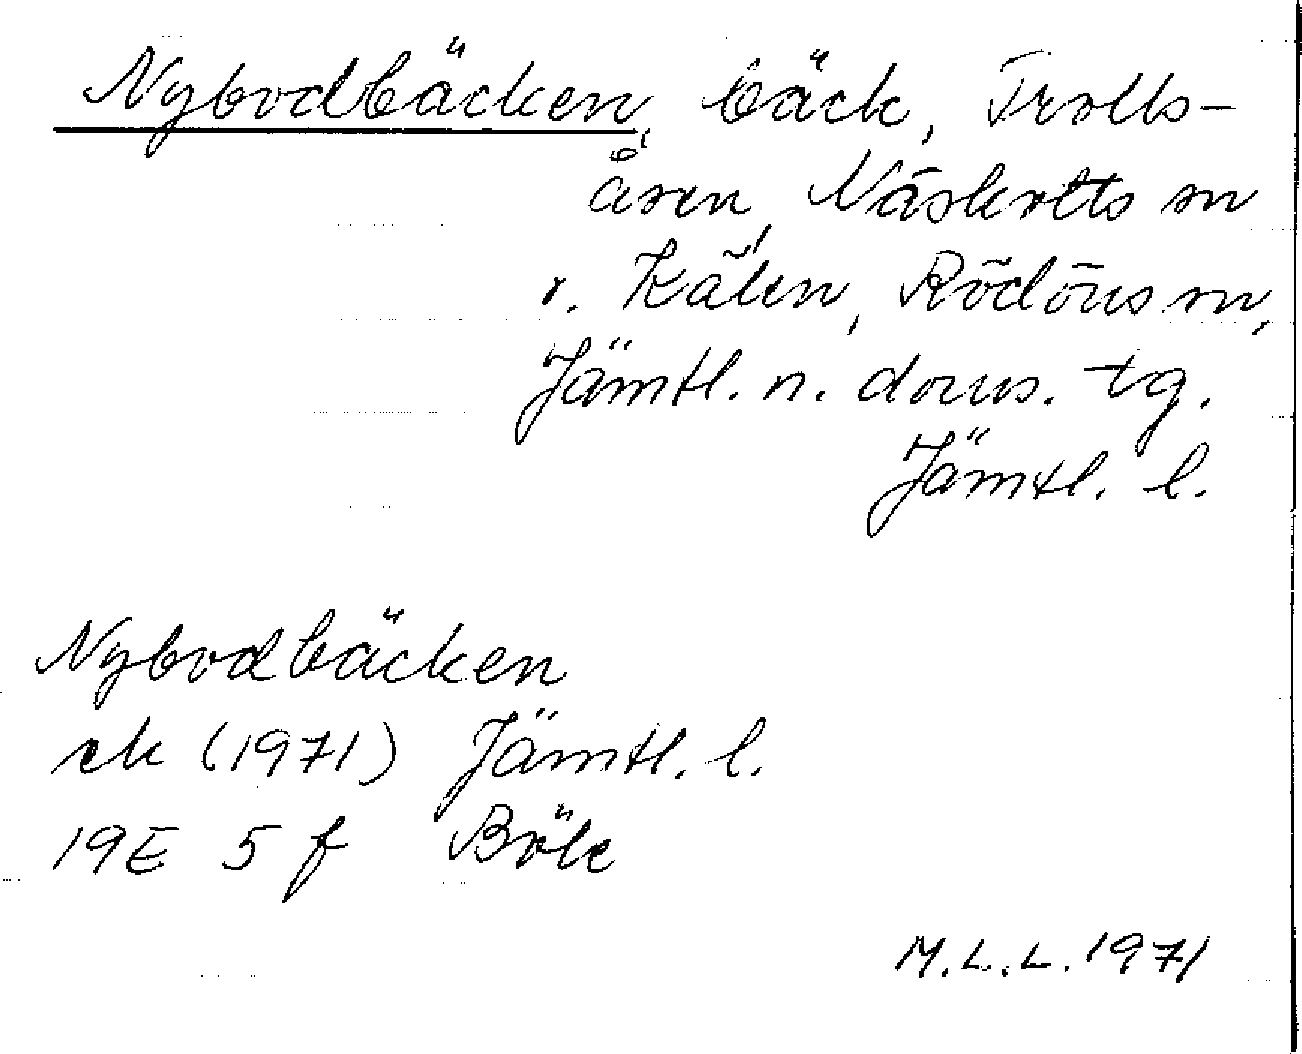 Nybodbäcken, bäck, Trolls-
åsen, Näskotts sn
o. Kälen, Rödöns sn,
Jämtl. n. doms. tg.
Jämtl. l.
Nybodbäcken
ek (1971) Jämtl. l.
19E 5 f Böle
M.L.L. 1971